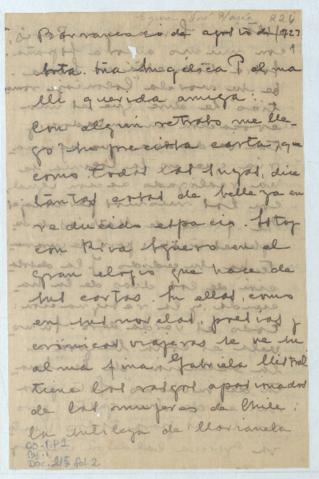 R26
Barranco 20 de agosto de 1927
Srta. Da Angélica Palma
Mi querida amiga:
Con algun retraso me lle-
gó su preciosa carta, que
como todas las suyas, dice
tantas cosas de belleza en
reducido espacio. Estoy
con Riva Agüero en el
gran elogio que hace de
sus cartas. En ellas, como
en sus novelas, poesías y
crónicas viajeras se ve su
alma fina. Gabriela Mistral
tiene los rasgos apasionados
de las mujeres de Chile:
la de
CO-1 P1
Doc. 215 fol. 2